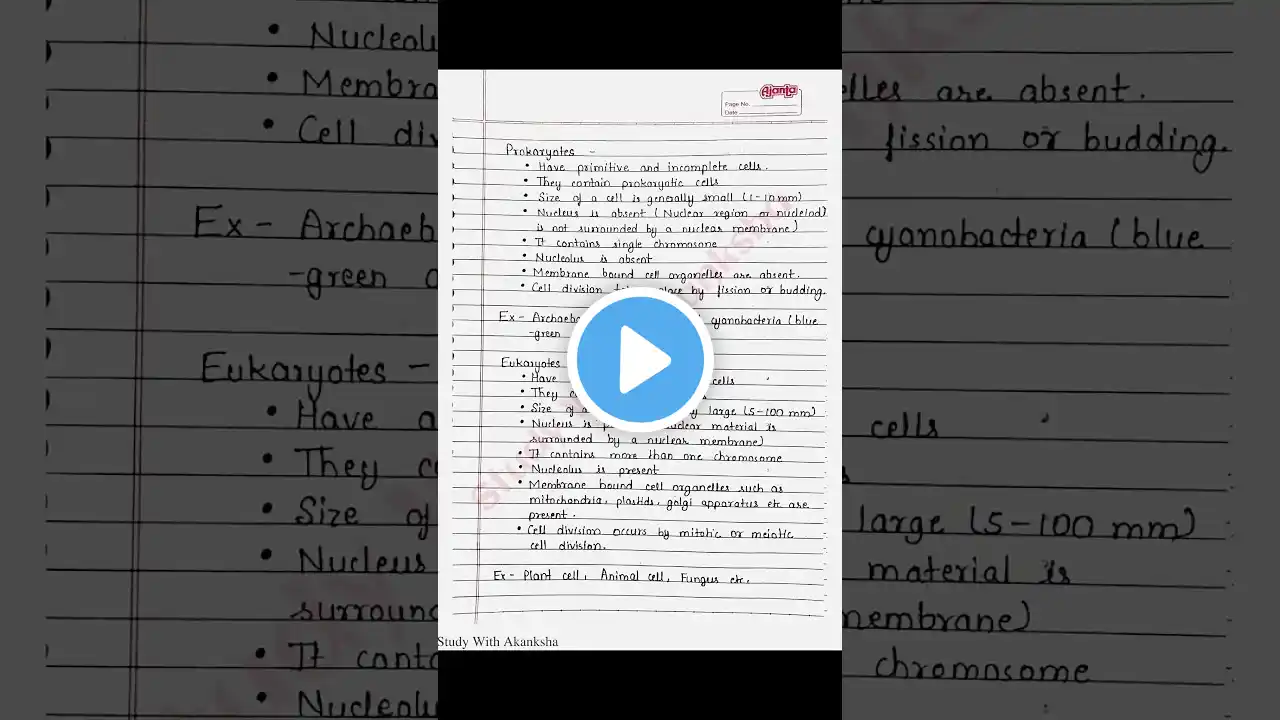 Ajanta
Page No.
Date
Prokaryotes -
• Have primitive and incomplete cells.
• They contain prokaryotic cells
• Size of a cell is generally small (1-10 mm)
• Nucleus is absent (Nuclear region or nucleiod)
is not surrounded by a nuclear membrane)
• It contains single chromosone
• Nucleolus is absent
• Membrane bound cell organelles are absent.
• Cell division place by fission or budding.
Ex- Archaeb cyanobacteria (blue
-green
Eukaryotes
• Have cells
• They
• Size of large (5-100 mm)
• Nucleus is material is
surrounded by a nuclear membrane)
• It contains more than one chromosome
• Nucleolus is present
• Membrane bound cell organelles such as
mitochondria, plastids, golgi apparatus etc are
present.
• Cell division occurs by mitotic or meiotic
cell division.
Ex- Plant cell, Animal cell, Fungus etc.
Study With Akanksha